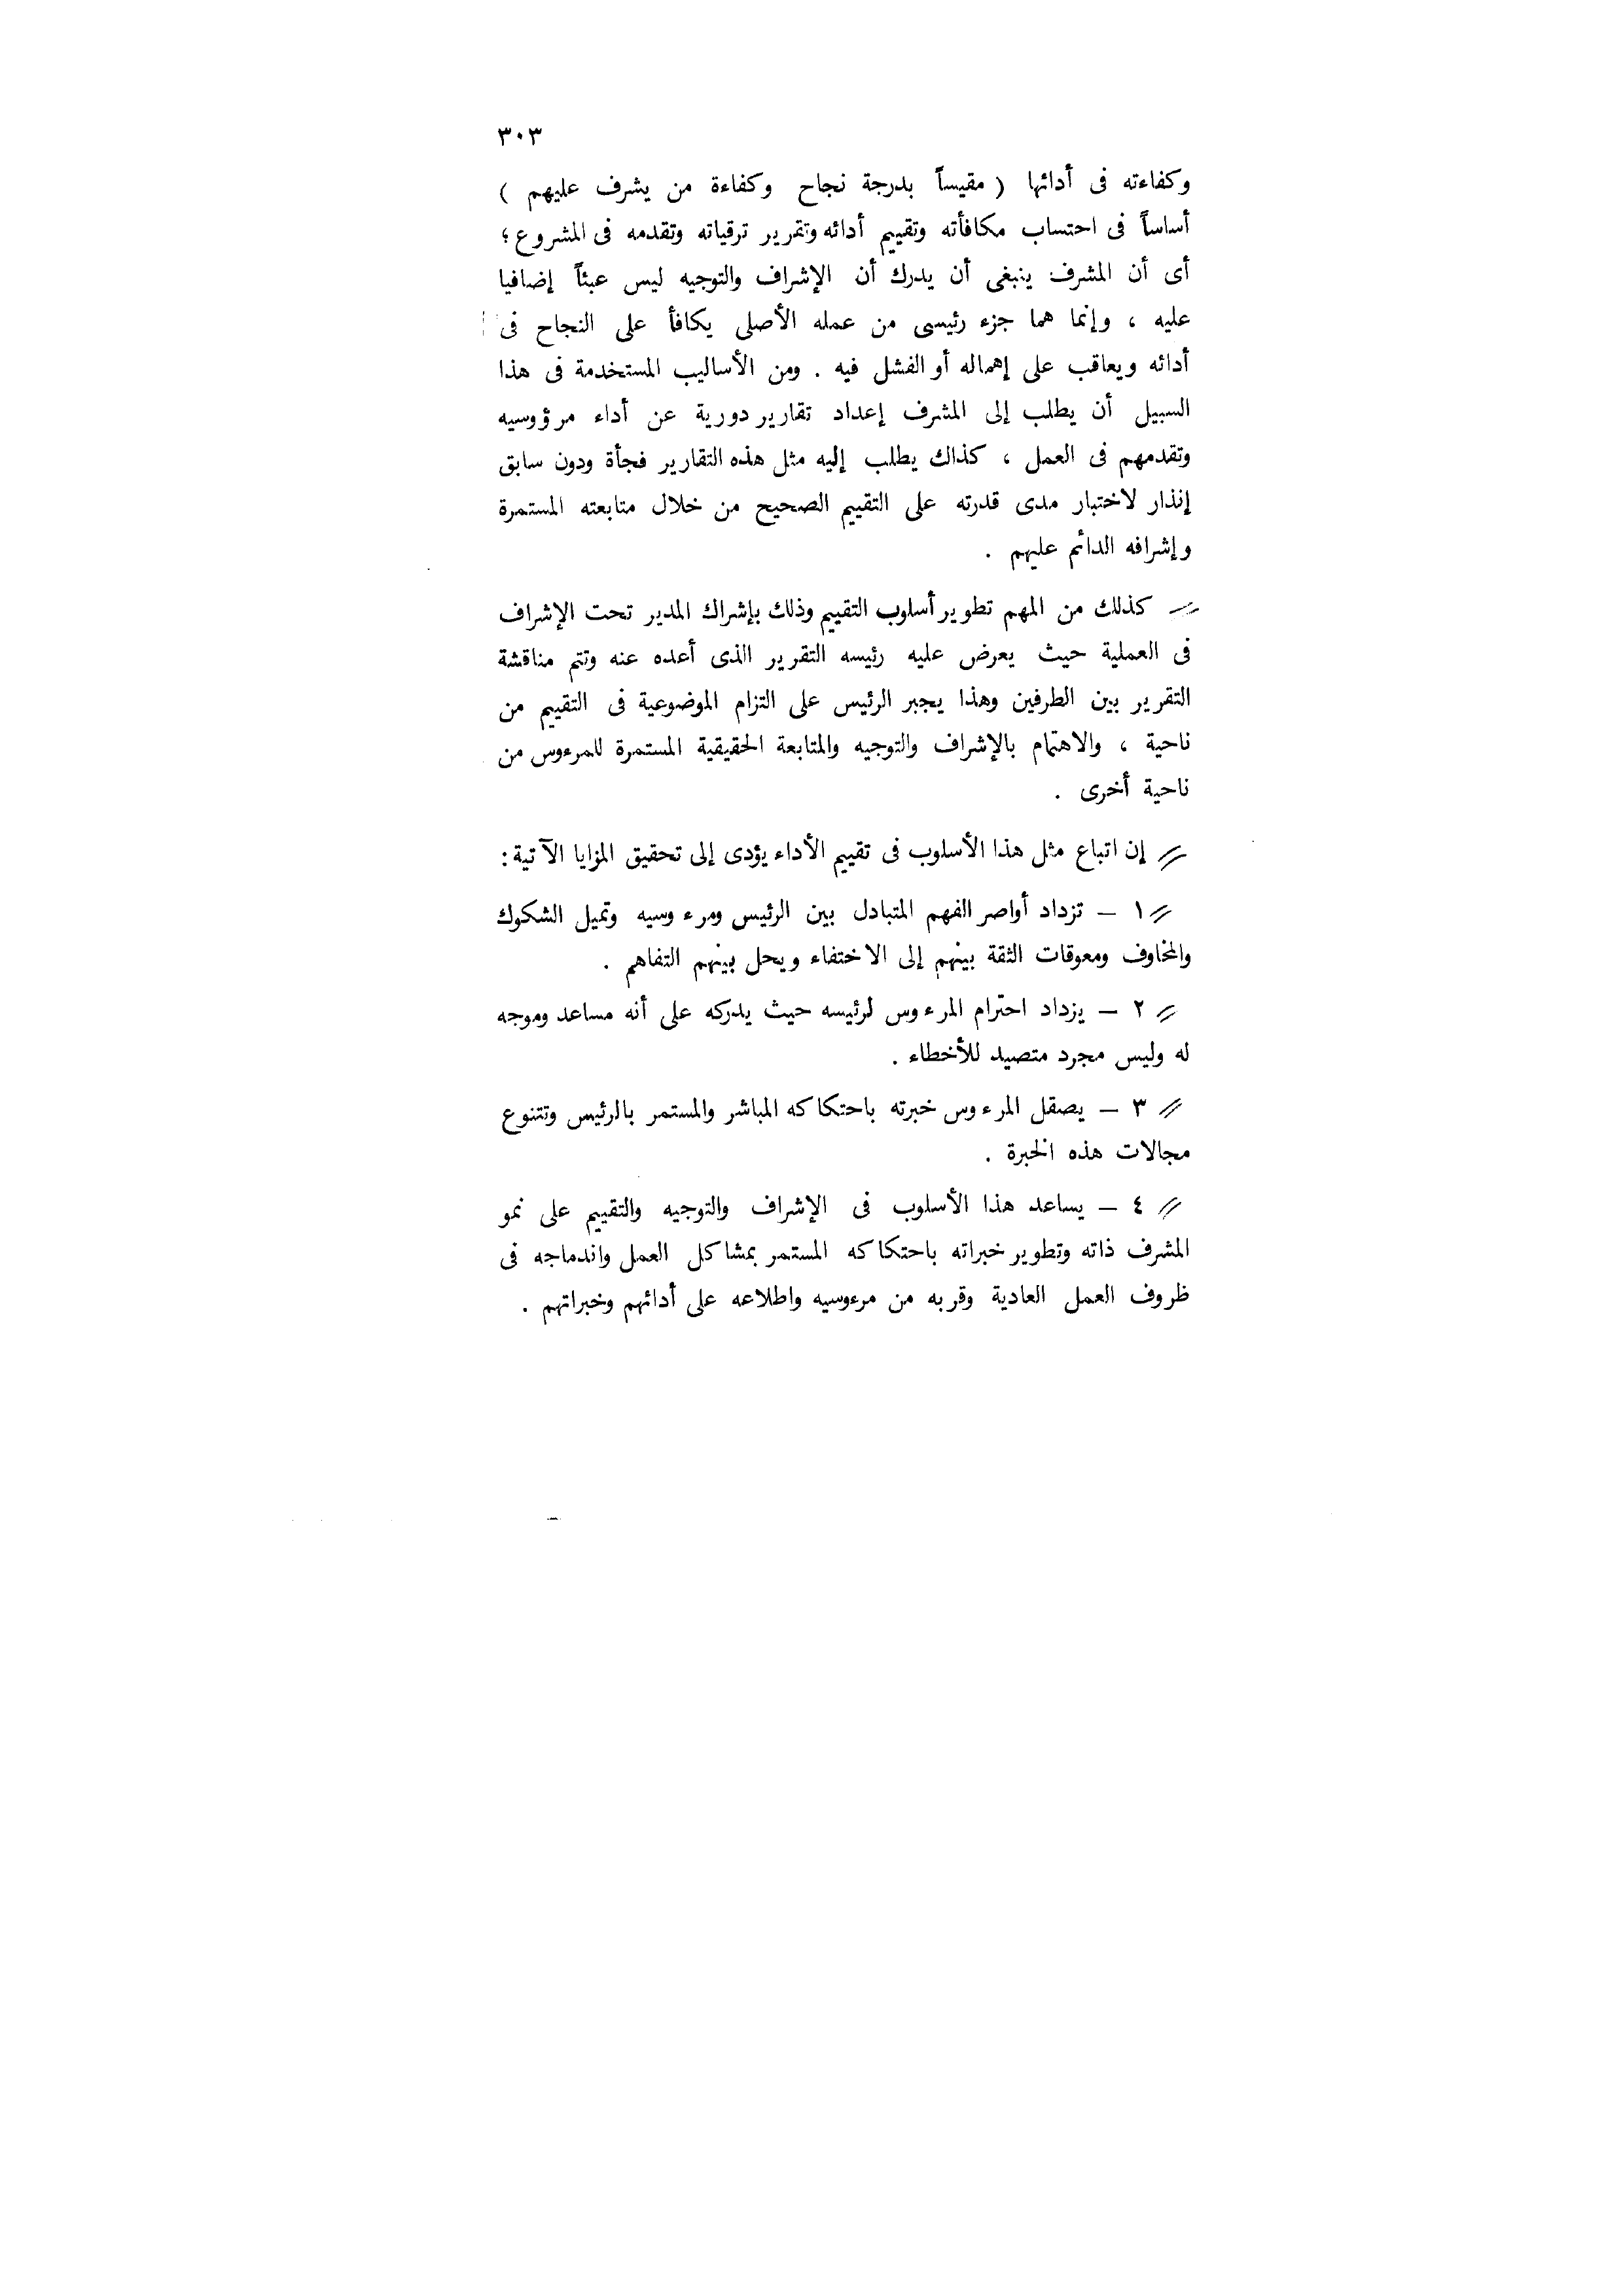 ٣٠٣
وكفاءته فى أدائها ( مقيساً بدرجة نجاح وكفاءة من يشرف عليهم )
أساساً فى احتساب مكافأته وتقييم أدائه وتقرير ترقياته وتقدمه فى المشروع ؛
أى أن المشرف ينبغى أن يدرك أن الإشراف والتوجيه ليس عبئاً إضافيا
عليه ، وإنما هما جزء رئيسى من عمله الأصلى يكافأ على النجاح فى
أدائه ويعاقب على إهماله أو الفشل فيه . ومن الأساليب المستخدمة فى هذا
السبيل أن يطلب إلى المشرف إعداد تقارير دورية عن أداء مرؤوسيه
وتقدمهم فى العمل ، كذلك يطلب إليه مثل هذه التقارير فجأة ودون سابق
إنذار لاختبار مدى قدرته على التقييم الصحيح من خلال متابعته المستمرة
وإشرافه الدائم عليهم .
كذلك من المهم تطوير أسلوب التقييم وذلك بإشراك المدير تحت الإشراف
فى العملية حيث يعرض عليه رئيسه التقرير الذى أعده عنه وتتم مناقشة
التقرير بين الطرفين وهذا يجبر الرئيس على التزام الموضوعية فى التقييم من
ناحية ، والاهتمام بالإشراف والتوجيه والمتابعة الحقيقية المستمرة للمرءوس من
ناحية أخرى .
إن اتباع مثل هذا الأسلوب فى تقييم الأداء يؤدى إلى تحقيق المزايا الآتية :
١ – تزداد أواصر الفهم المتبادل بين الرئيس ومرءوسيه وتميل الشكوك
والمخاوف ومعوقات الثقة بينهم إلى الاختفاء ويحل بينهم التفاهم .
٢ – يزداد احترام المرءوس لرئيسه حيث يدركه على أنه مساعد وموجه
له وليس مجرد متصيد للأخطاء .
٣ – يصقل المرءوس خبرته باحتكاكه المباشر والمستمر بالرئيس وتتنوع
مجالات هذه الخبرة .
٤ – يساعد هذا الأسلوب فى الإشراف والتوجيه والتقييم على نمو
المشرف ذاته وتطوير خبراته باحتكاكه المستمر بمشاكل العمل واندماجه فى
ظروف العمل العادية وقربه من مرءوسيه واطلاعه على أدائهم وخبراتهم .